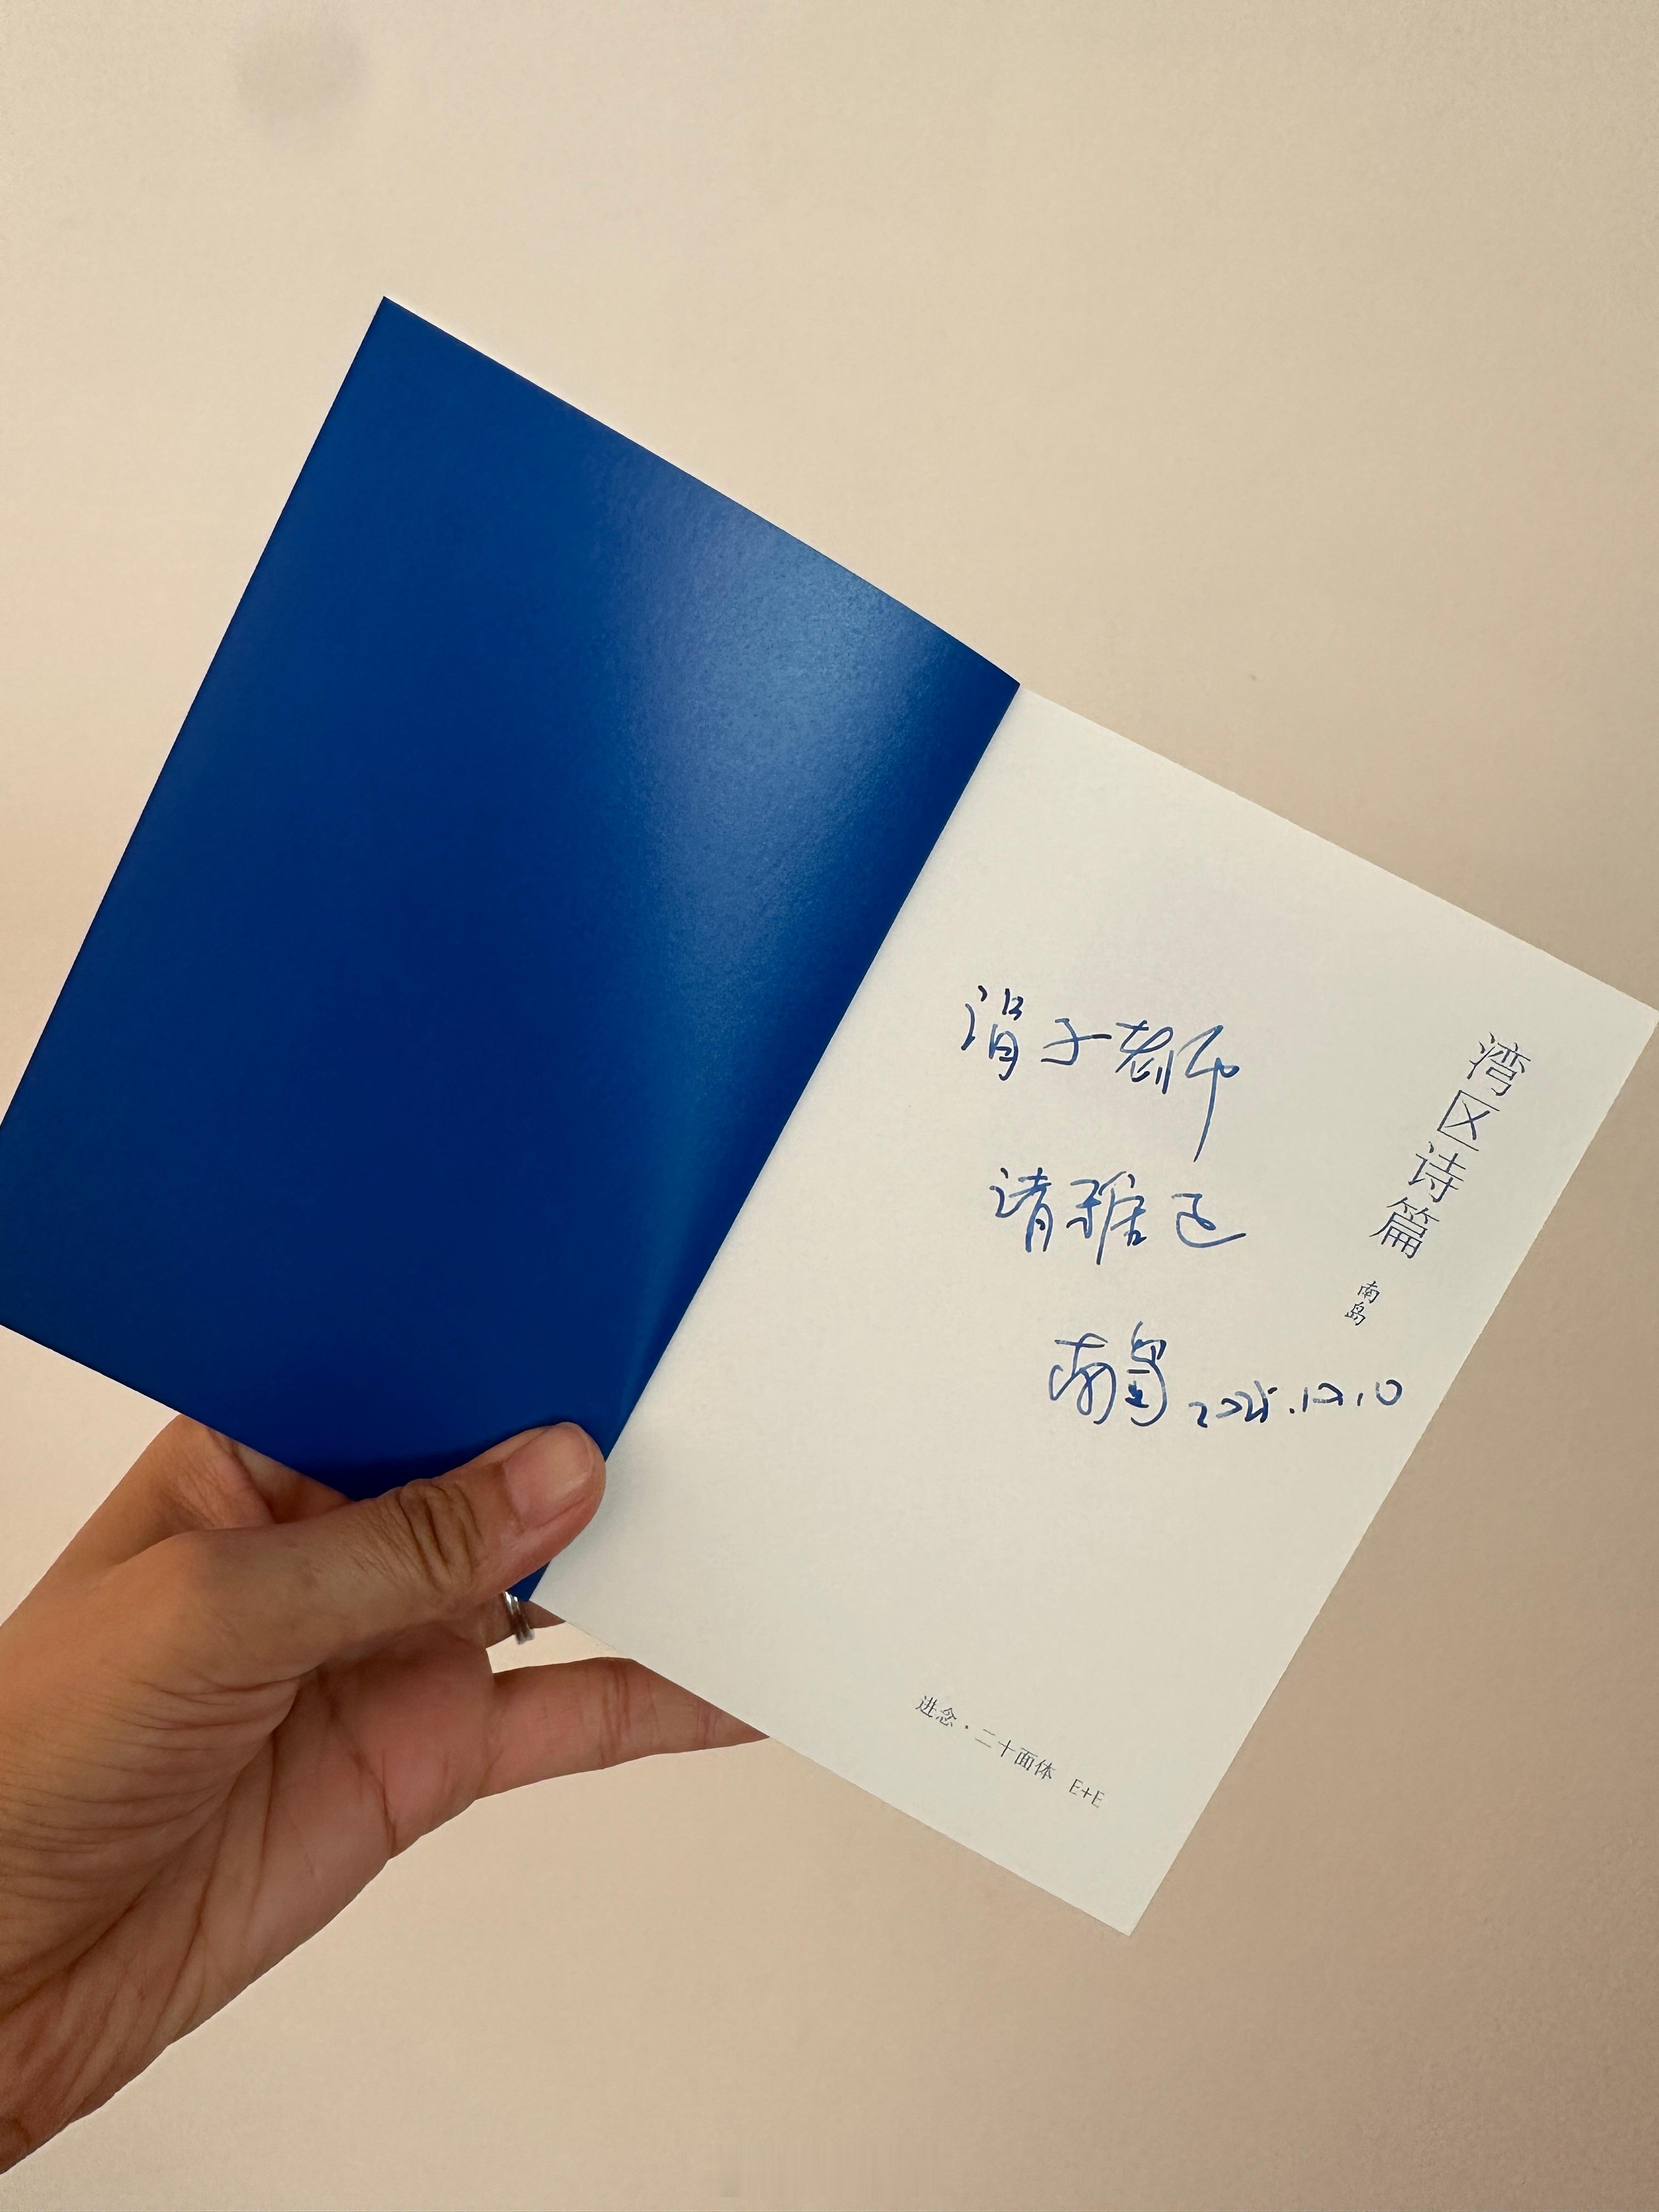 湾区诗篇
南岛
涓子老师
请雅正
南岛 2025.12.10
进念·二十面体 E+E